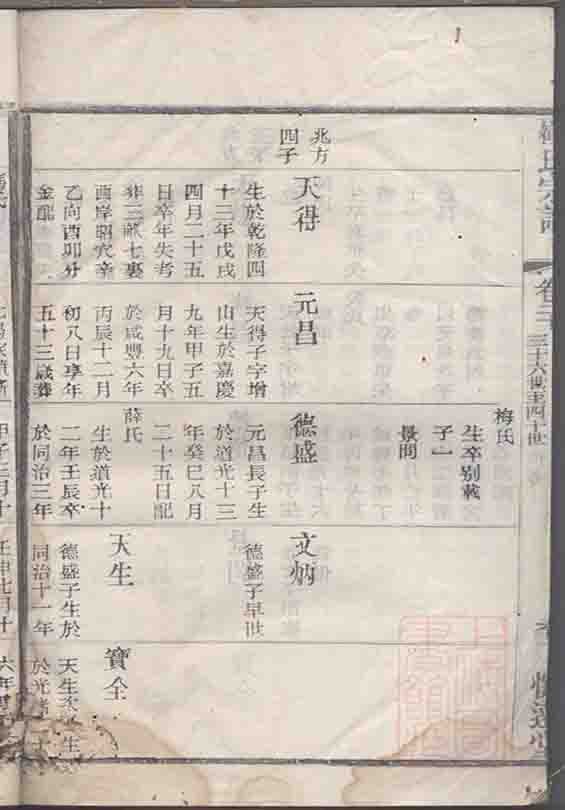 氏宗譜
卷三
三十六世至四十世
北方
四子
天得
生於乾隆四
十三年戊戌
四月二十五
日卒年失考
葬三畝七裏
酉岸昭穴辛
乙向酉卯分
金配
元昌
天得子字增
山生於嘉慶
九年甲子五
月十九日卒
於咸豐六年
丙辰十二月
初八日享年
五十三歲葬
梅氏
生卒別載
子一
景問
德盛
元昌長子生
於道光十三
年癸巳八月
二十五日配
薛氏
生於道光十
二年壬辰卒
於同治三年
甲子三月十
文炳
德盛子早世
天生
德盛子生於
同治十一年
壬申七月十
寶全
天生次子生
於光緒二十
六年